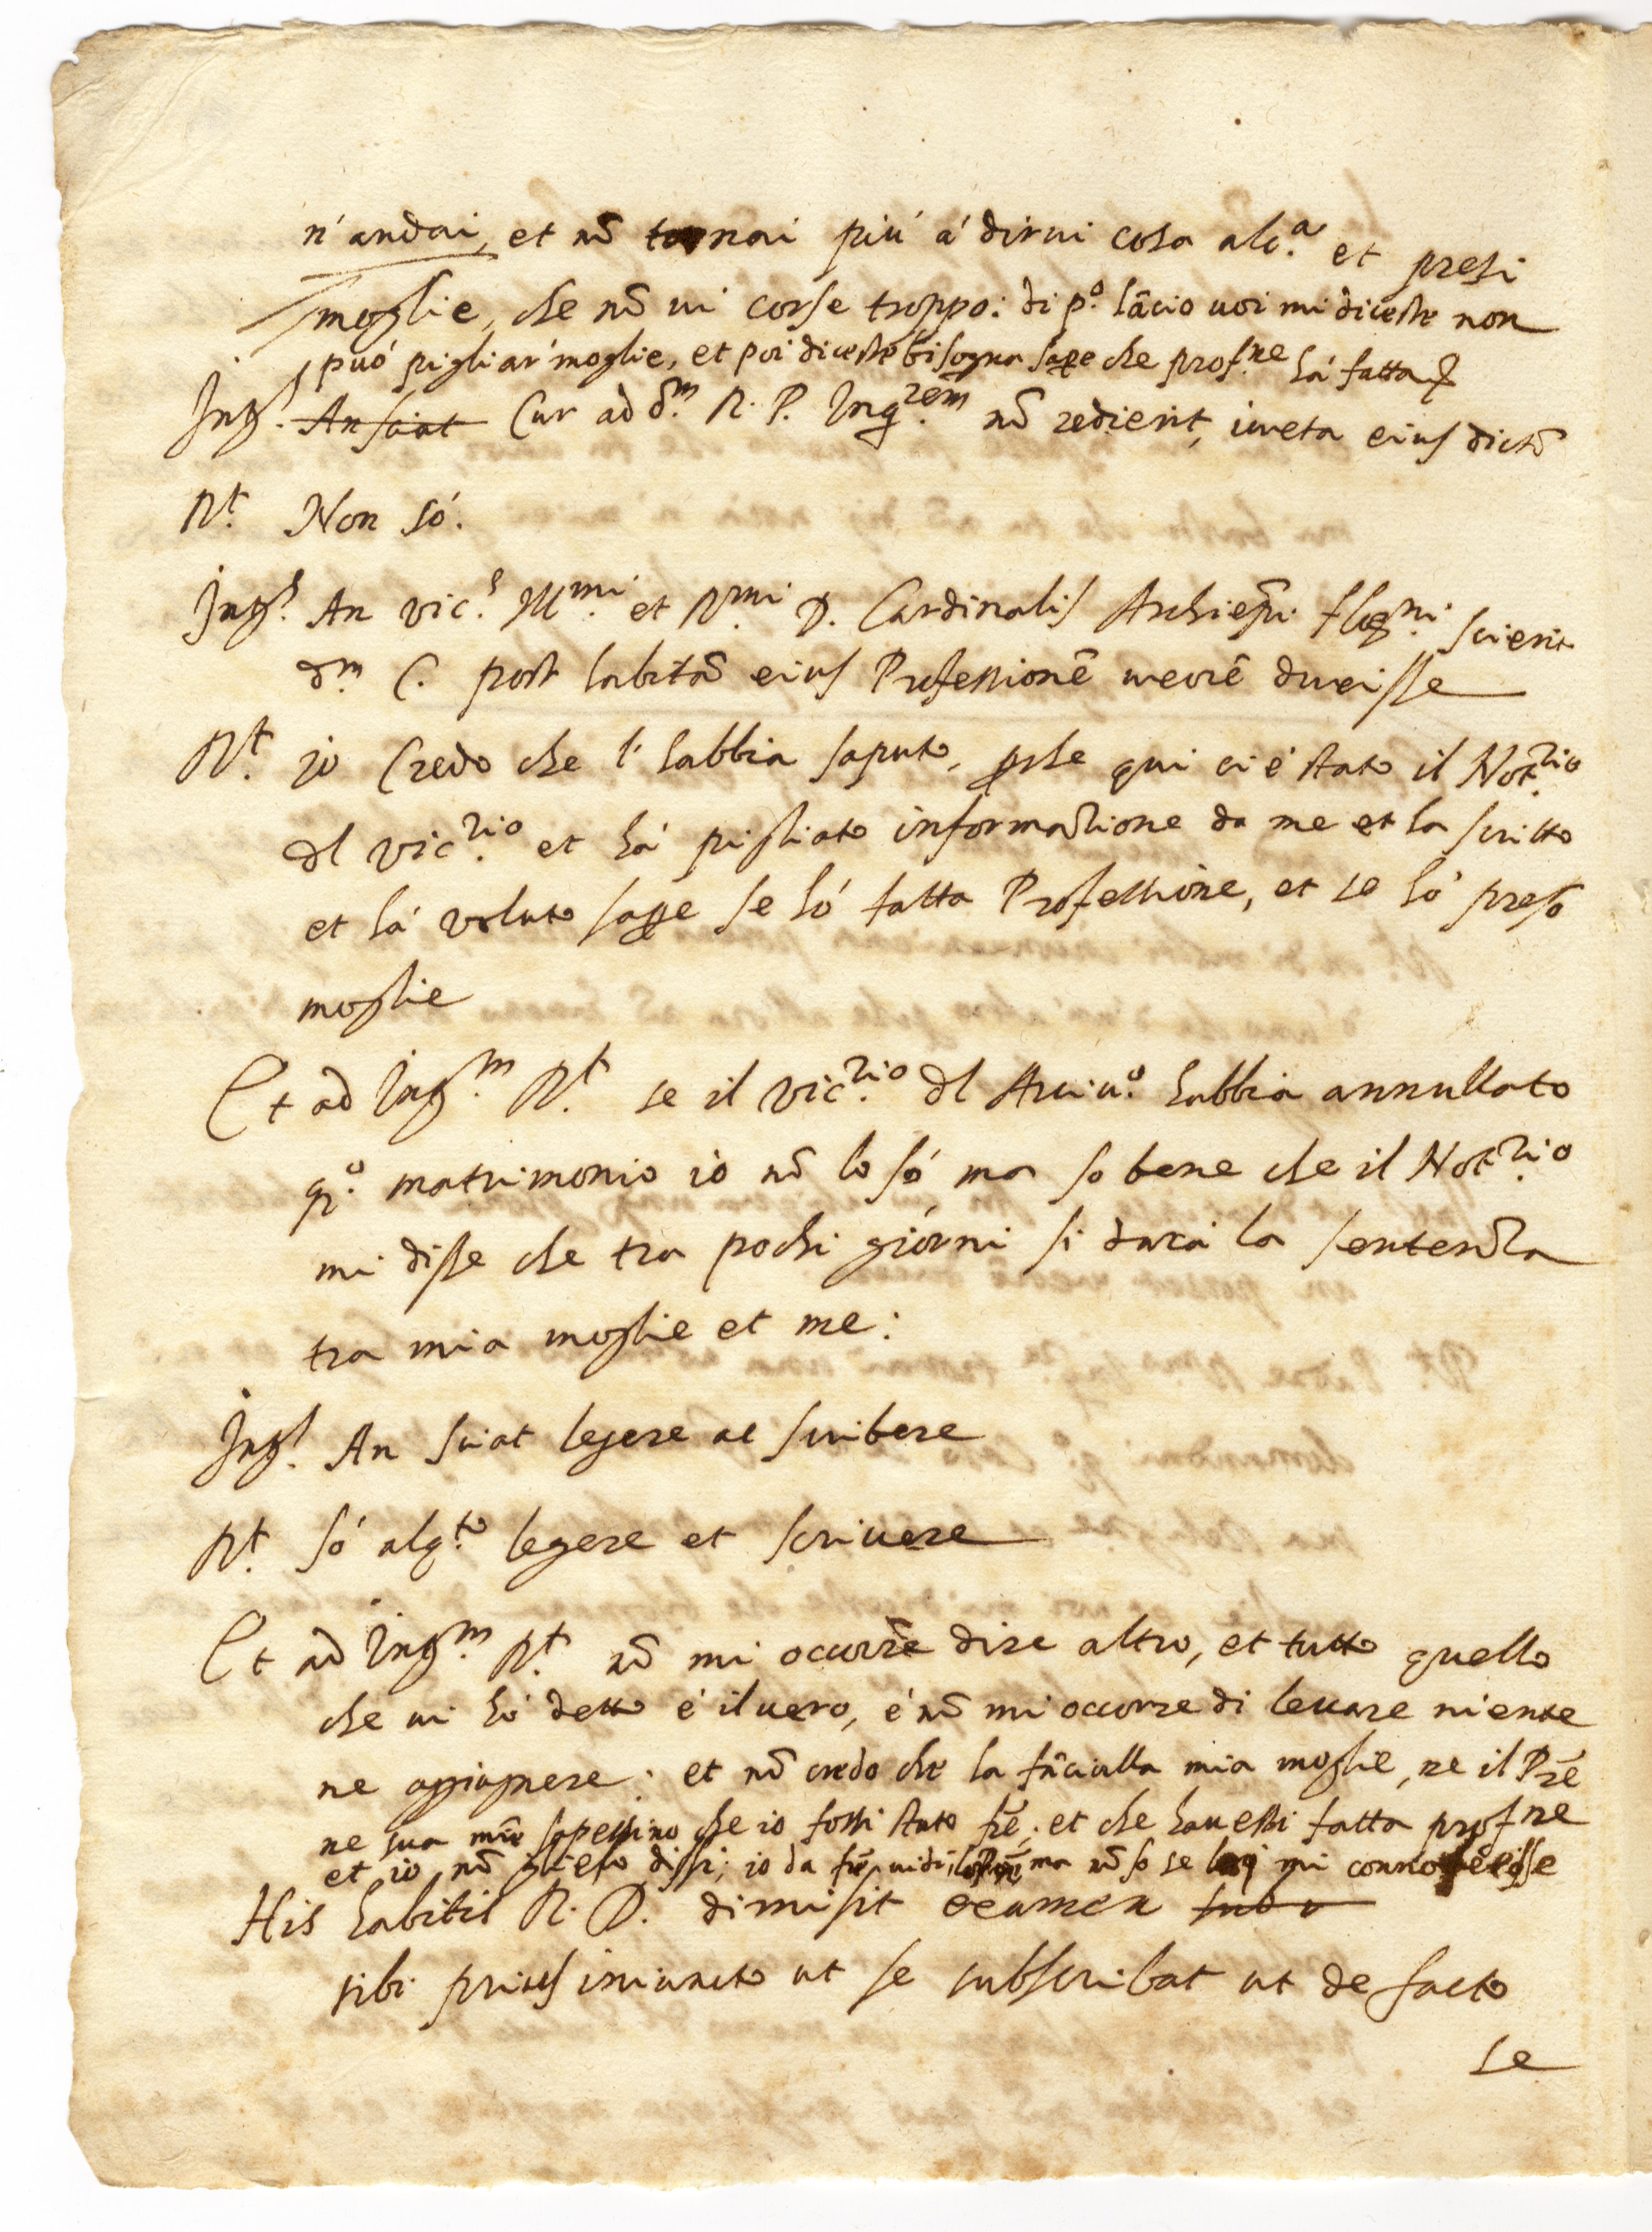 n'andai, et nō tornai più á dirui cosa alc.ª et presi
moglie, che nō ui corse troppo: di p.º lācio uoi mi diceste non
può pigliar' moglie, et poi diceste bisogna sape che prof.ne há fatta
Int.s An sciat Cur ad d.m R. P. Inq.rem nō redierit, iuxta eius dictū
R.t Non só.
Int.s An vic.s Ill.mi et R.mi D. Cardinalis Archiepi scierit
d.m C. post habitā eius Professionē uxorē duxisse
R.t io Credo che l'habbia saputo, pche qui ci è stato il Not.rio
dl vic.rio et há pigliato informatione da me et ha scritto
et há voluto sape se hó fatta Professione, et se hó preso
moglie
Et ad Int.m R.t se il vic.rio dl Arciu.º habbia annullato
q.º matrimonio io nō lo só ma so bene che il Not.rio
mi disse che tra pochi giorni si dará la sentenza
tra mia moglie et me:
Int.s An sciat legere ac scribere
R.t Só alq.to legere et scriuere
Et ad Int.m R.t nō mi occorre dire altro, et tutto quello
che ui hó detto é il uero, é nō mi occorre di leuare niente
ne aggiugnere: et nō credo che la fāciulla mia moglie, ne il Prē
ne sua mrē sapessino che io fossi stato frē, et che hauessi fatta prof.ne
et io nō glielo dissi; io da frē uidi ma nō so se mi
His habitis R. D. dimisit examen
sibi prius iniuncto ut se subscribat ut de facto
se